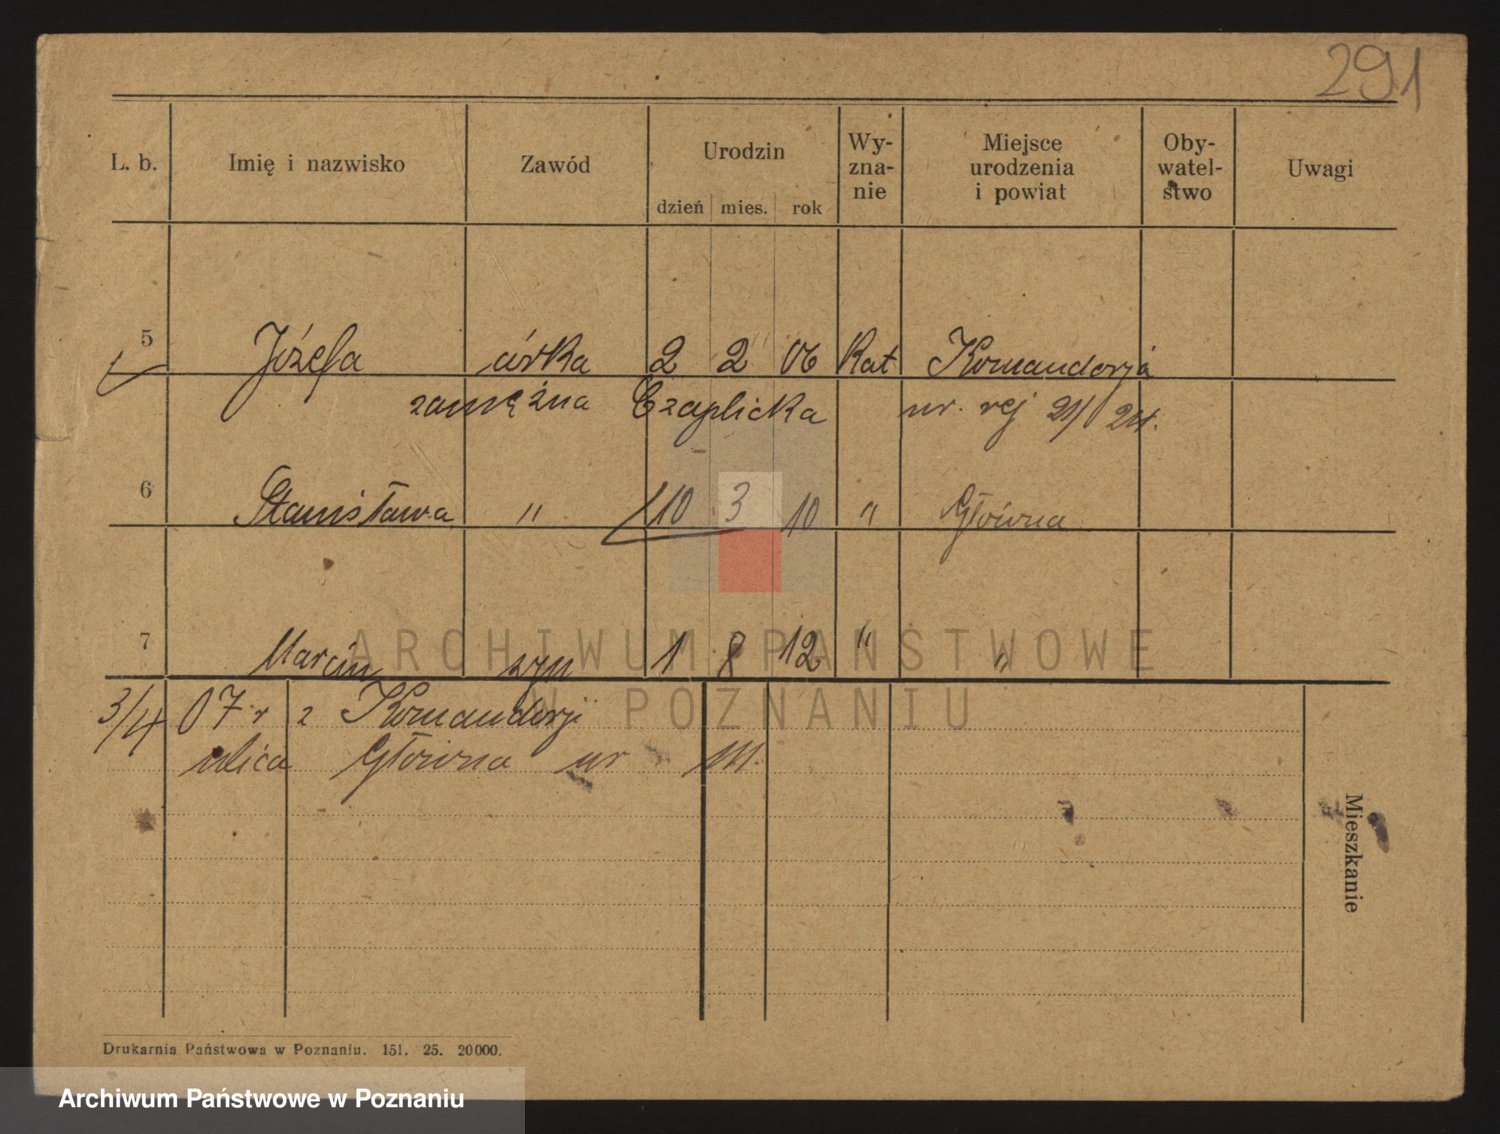 291
L. b. Imię i nazwisko Zawód Urodzin dzień mies. rok Wy- zna- nie Miejsce urodzenia i powiat Oby- watel- stwo Uwagi
5 Józefa córka 2 2 06 Kat Komandorja
zamężna Czaplicka nr. rej 21/24.
6 Stanisława " 10 3 10 " Główna
7 Marcin syn 1 8 12 " "
3/4 07 r z Komandorji
ulica Główna nr
Mieszkanie
Drukarnia Państwowa w Poznaniu. 151. 25. 20000.
ARCHIWUM PAŃSTWOWE
W POZNANIU
Archiwum Państwowe w Poznaniu